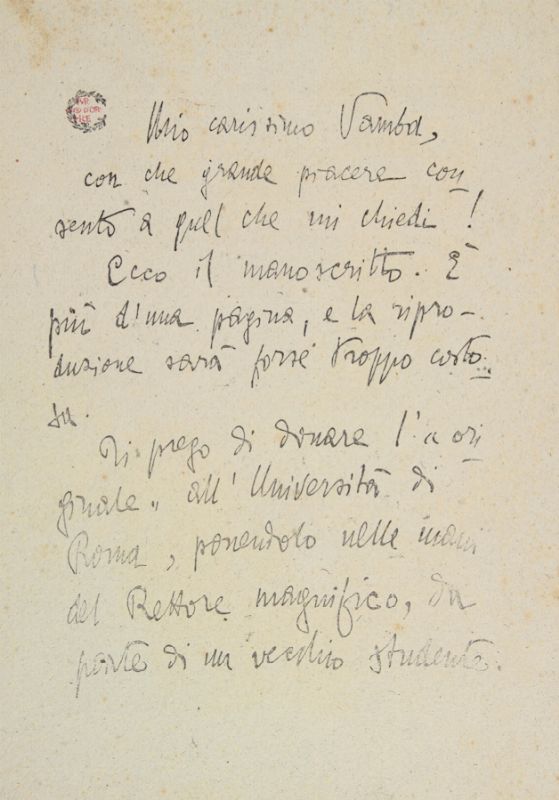 PER
NON DOR
MIRE
Mio carissimo Vamba,
con che grande piacere con
sento a quel che mi chiedi!
Ecco il manoscritto. È
più d'una pagina, e la ripro-
duzione sarà forse troppo costo
sa.
Ti prego di donare l'« ori
ginale » all'Università di
Roma, ponendolo nelle mani
del Rettore magnifico, da
parte di un vecchio studente.